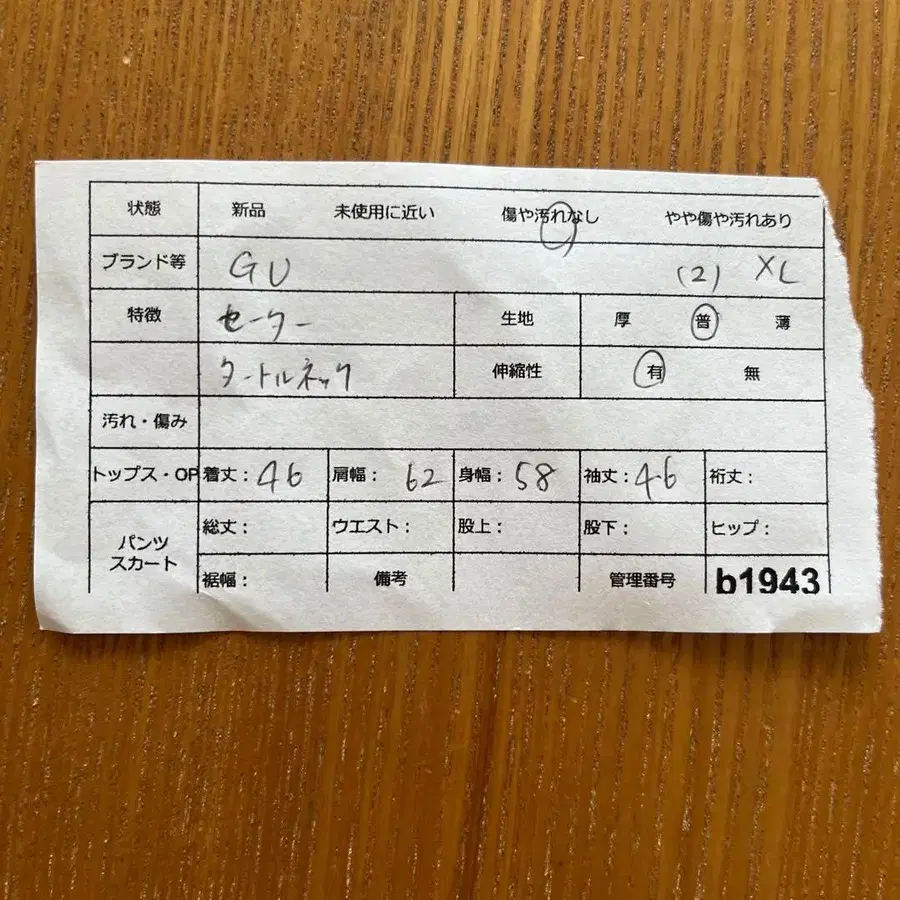 状態 新品 未使用に近い 傷や汚れなし やや傷や汚れあり
ブランド等 GU (2) XL
特徴 セーター 生地 厚 普 薄
タートルネック 伸縮性 有 無
汚れ・傷み
トップス・OP 着丈:46 肩幅:62 身幅:58 袖丈:46 裄丈:
パンツ スカート 総丈: ウエスト: 股上: 股下: ヒップ:
裾幅: 備考 管理番号 b1943